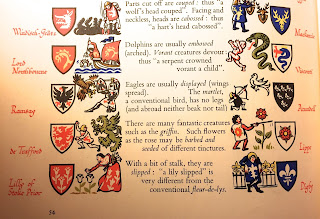 Parts cut off are couped: thus "a
wolf's head couped". Facing and
neckless, heads are cabossed: thus
"a hart's head cabossed".
Dolphins are usually embowed
(arched). Vorant creatures devour:
thus "a serpent crowned
vorant a child".
Eagles are usually displayed (wings
spread). The martlet,
a conventional bird, has no legs
(and abroad neither beak nor tail)
There are many fantastic creatures
such as the griffin. Such flowers
as the rose may be barbed and
seeded of different tinctures.
With a bit of stalk, they are
slipped: "a lily slipped" is
very different from the
conventional fleur-de-lys.
Lord
Ramsay
de Trafford
Lilly of
Stoke Prior
Visconti
Arundel
Lippe
Digby
54